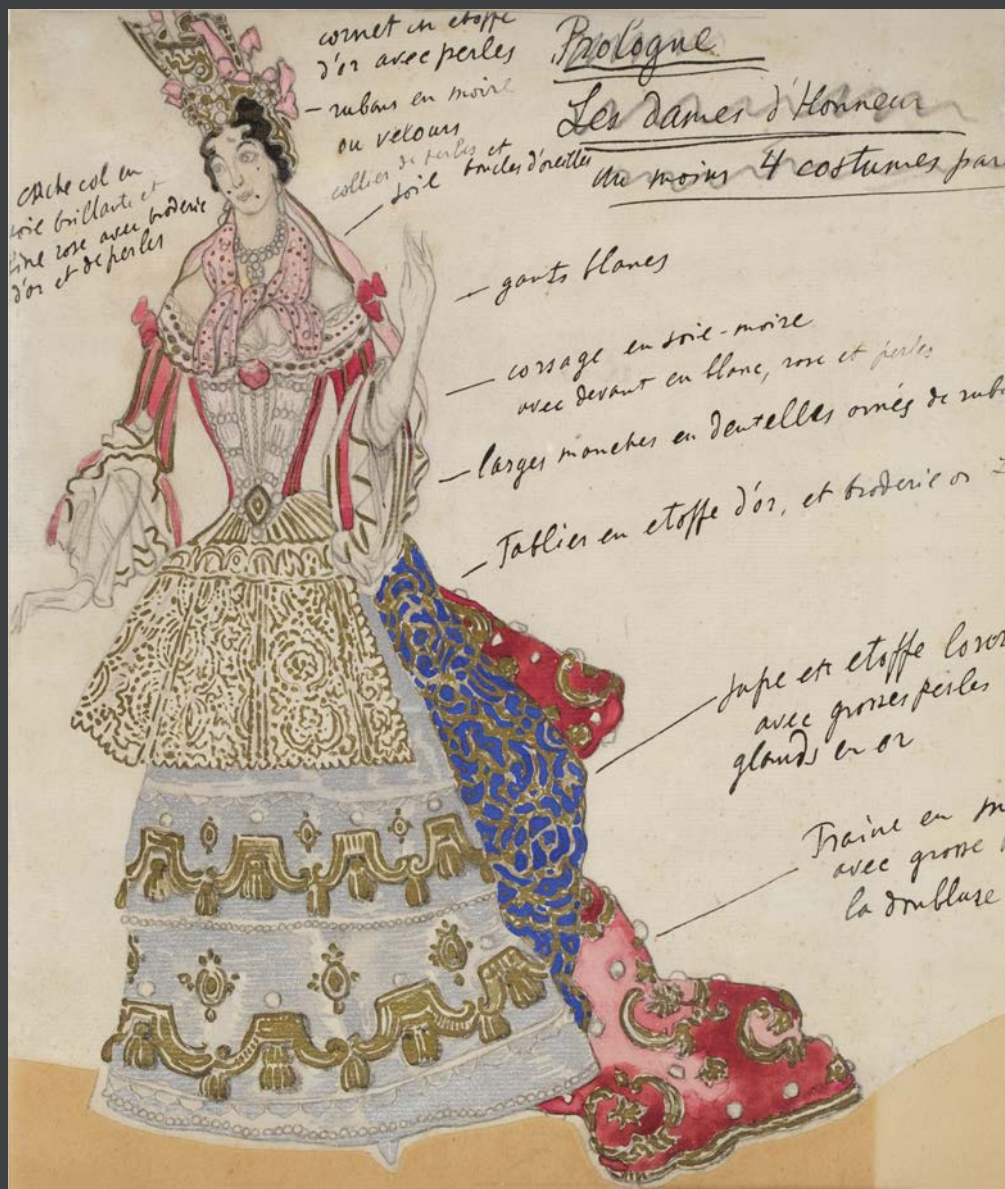 cornet en etoffe
d'or avec perles
rubans en moire
ou velours
collier de perles et
soie boucles d'oreilles
Prologue
Les dames d'Honneur
au moins 4 costumes
cache col en
soie brillante et
fine rose avec broderie
d'or et de perles
gants blancs
corsage en soie-moire
avec devant en blanc, rose et perles
larges manches en dentelles ornés de
Tablier en etoffe d'or, et broderie or
jupe en etoffe
avec grosses perles
glands en or
Traine en
avec grosse
la doublure